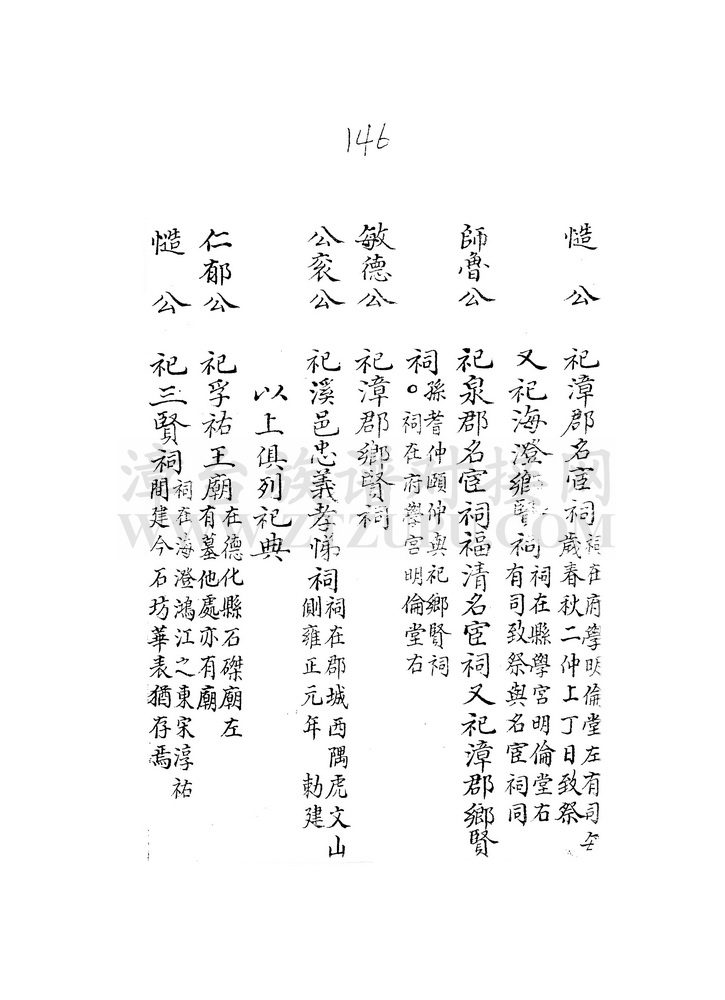 146
慥公 祀漳郡名宦祠 祠在府學明倫堂左有司
歲春秋二仲上丁日致祭
又祀海澄鄉賢祠 祠在縣學宮明倫堂右
有司致祭與名宦祠同
師魯公 祀泉郡名宦祠福清名宦祠又祀漳郡鄉賢
祠 孫耆仲頤仲與祀鄉賢祠
。祠在府學宮明倫堂右
敏德公 祀漳郡鄉賢祠
公袞公 祀溪邑忠義孝悌祠 祠在郡城西隅虎文山
側雍正元年 勅建
以上俱列祀典
仁郁公 祀孚祐王廟 在德化縣石磔廟左
有墓他處亦有廟
慥公 祀三賢祠 祠在海澄鴻江之東宋淳祐
間建今石坊華表猶存焉
漳台族谱对接网
www.ztzupu.com